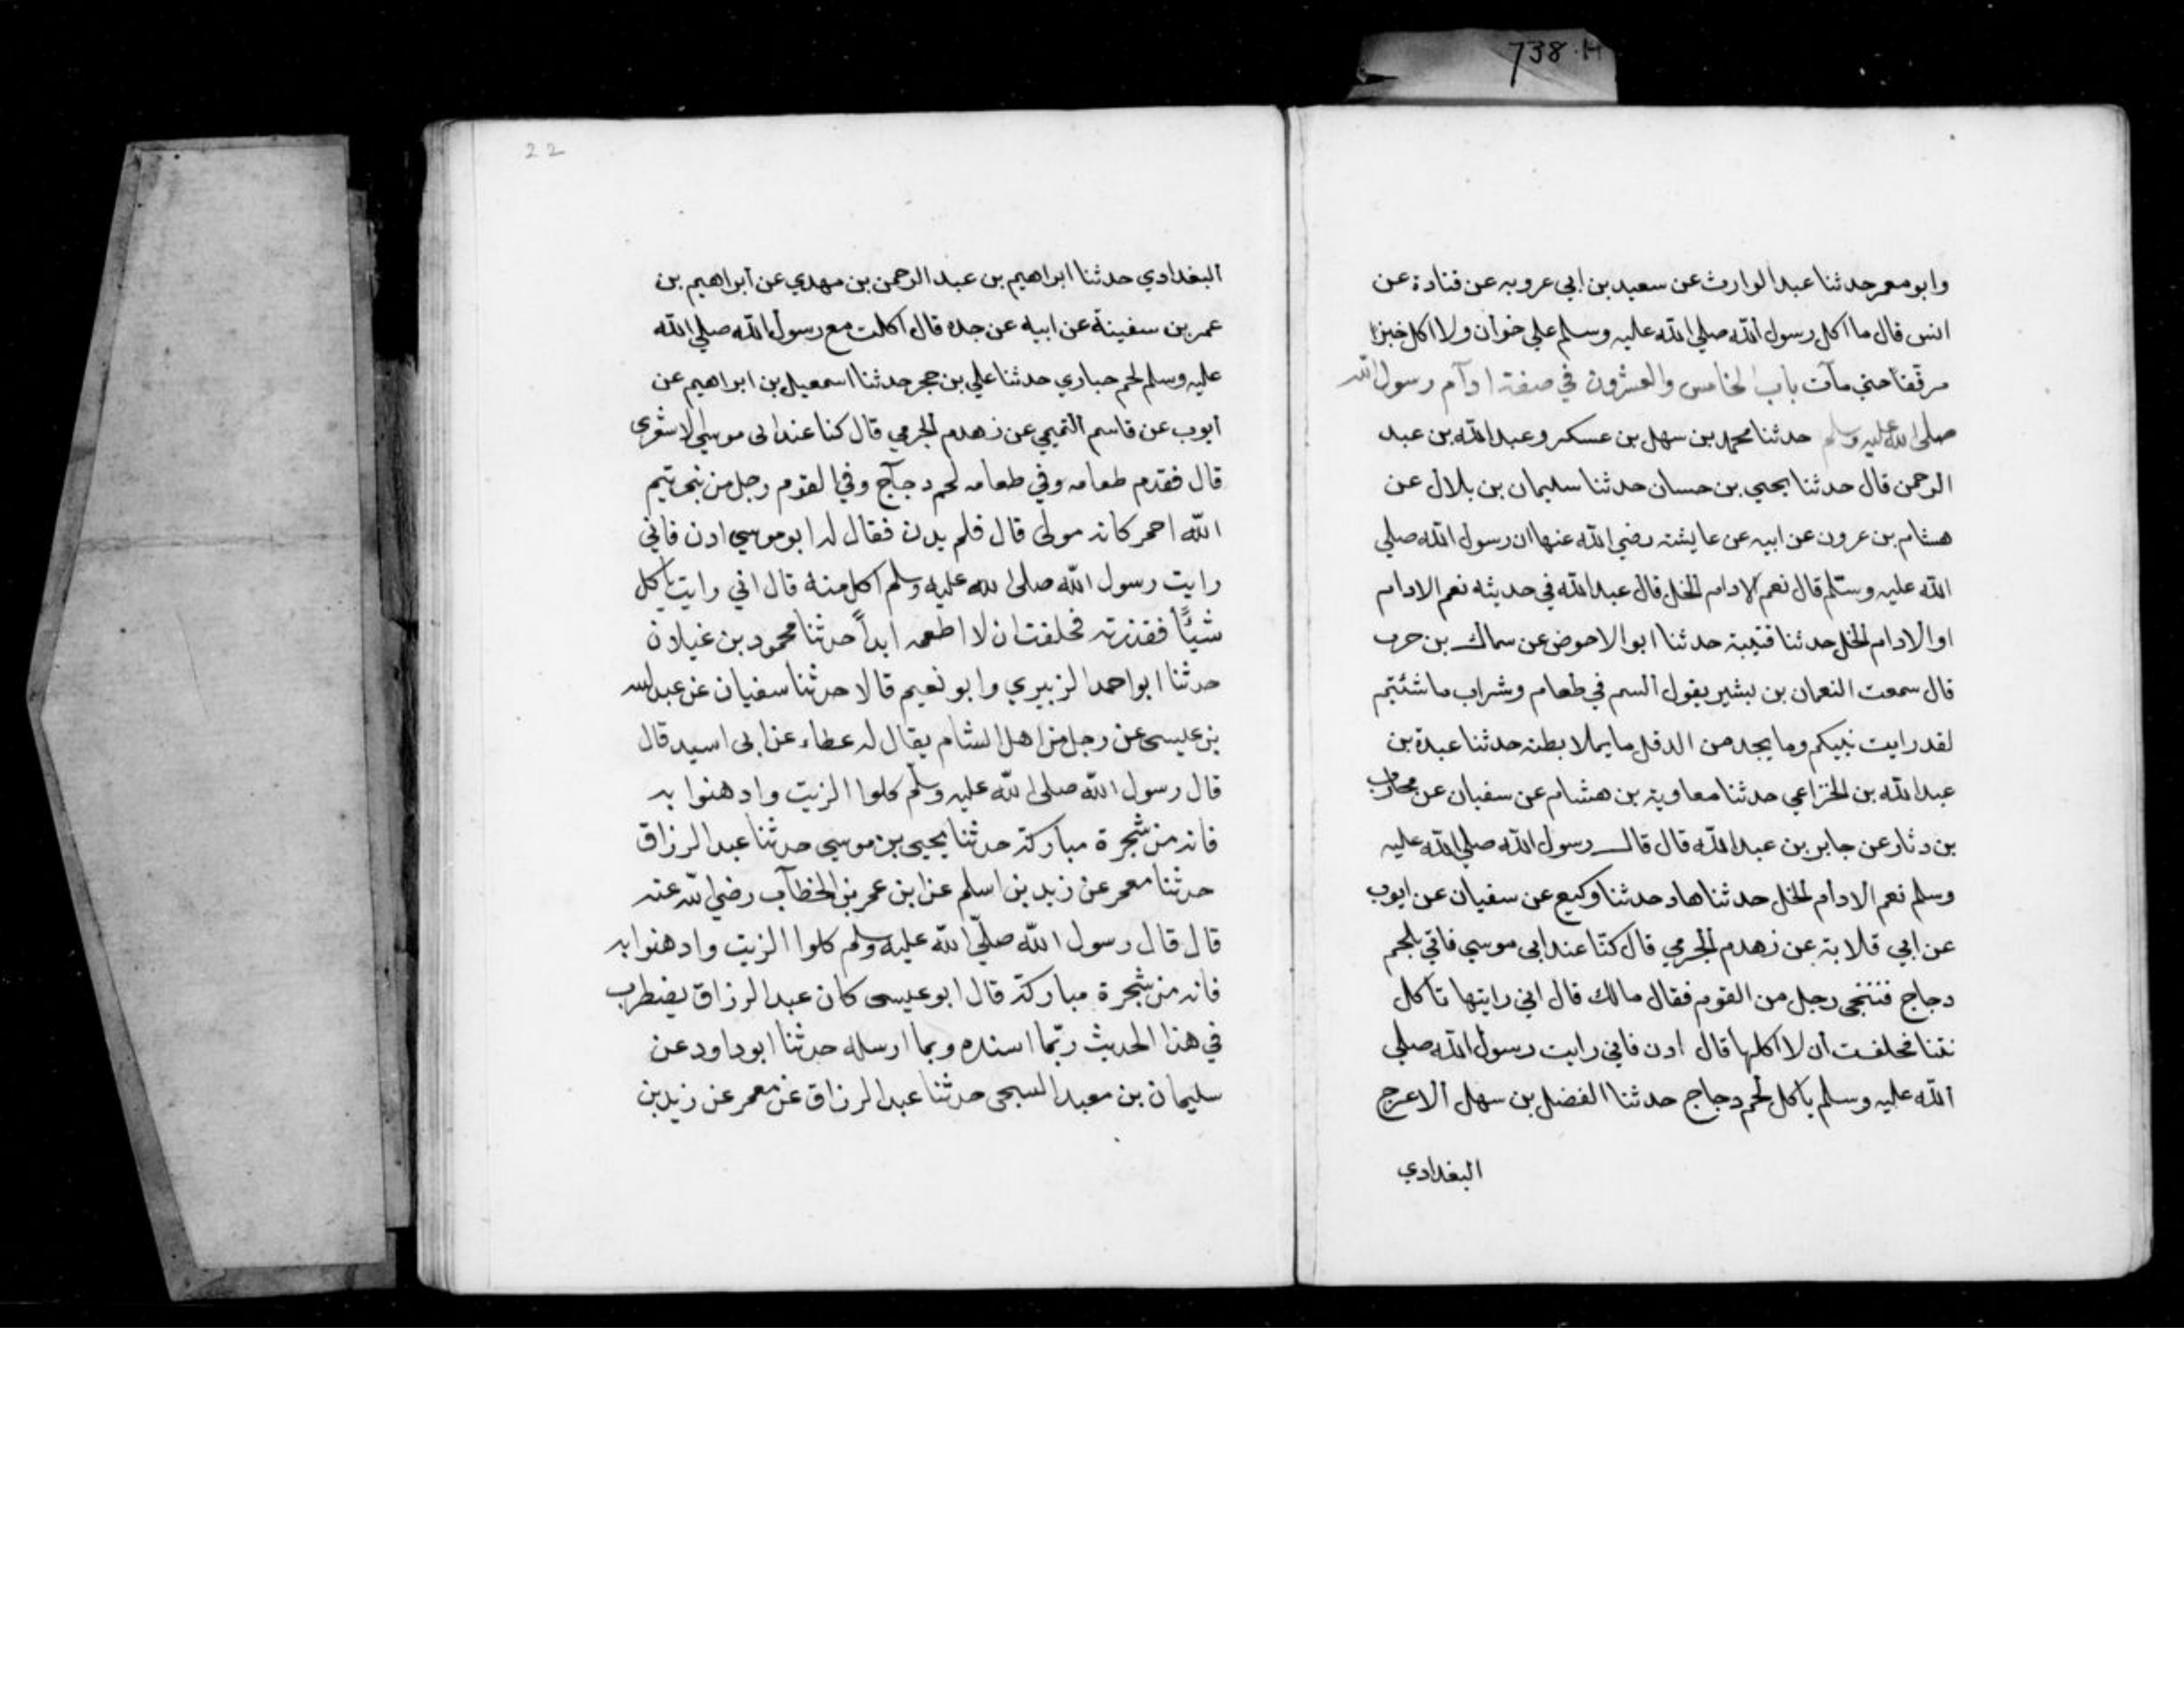 738.H
وابو معمر حدثنا عبد الوارث عن سعيد بن ابي عروبه عن قتادة عن
انس قال ما اكل رسول الله صلي الله عليه وسلم علي خوان ولا اكل خبزا
مرققا حتي مآت باب الخامس والعشرون في صفة ادآم رسول الله
صلى الله عليه وسلم حدثنا محمد بن سهل بن عسكر وعبد الله بن عبد
الرحمن قال حدثنا يحيي بن حسان حدثنا سليمان بن بلال عن
هشام بن عرون عن ابيه عن عايشة رضي الله عنها ان رسول الله صلي
الله عليه وسلم قال نعم الادام الخل قال عبد الله في حديثه نعم الادام
او الادام الخل حدثنا قتيبة حدثنا ابو الاحوض عن سماك بن حرب
قال سمعت النعمان بن بشير يقول السم في طعام وشراب ما شئتم
لقد رايت نبيكم وما يجد من الدقل ما يملا بطنه حدثنا عبدة بن
عبد الله بن الخزاعي حدثنا معاوية بن هشام عن سفيان عن محارب
بن دثار عن جابر بن عبد الله قال قال رسول الله صلي الله عليه
وسلم نعم الادام الخل حدثنا هاد حدثنا وكيع عن سفيان عن ايوب
عن ابي قلابة عن زهدم الجرمي قال كنّا عند ابى موسي فاتي بلحم
دجاج فتنحى رجل من القوم فقال مالك قال اني رايتها تاكل
نتنا فحلفت ان لا اكلها قال ادن فاني رايت رسول الله صلي
الله عليه وسلم ياكل لحم دجاج حدثنا الفضل بن سهل الاعرج
البغدادي
22
البغدادي حدثنا ابراهيم بن عبد الرحمن بن مهدي عن ابراهيم بن
عمر بن سفينة عن ابيه عن جده قال اكلت مع رسول الله صلي الله
عليه وسلم لحم حباري حدثنا علي بن حجر حدثنا اسمعيل بن ابراهيم عن
ايوب عن قاسم التميمي عن زهدم الجرمي قال كنا عند ابى موسي الاشعرى
قال فقدم طعامه وفي طعامه لحم دجآج وفي القوم رجل من بنى تيم
الله احمر كانه مولى قال فلم يدن فقال له ابو موسي ادن فاني
رايت رسول الله صلى الله عليه وسلم اكل منه قال اني رايت ياكل
شيئًا فقذرته فحلفت ان لا اطعمه ابداً حدثنا محمود بن غيلان
حدثنا ابو احمد الزبيري وابو نعيم قالا حدثنا سفيان عن عبد الله
بن عليسى عن رجل من اهل الشام يقال له عطاء عن ابى اسيد قال
قال رسول الله صلى الله عليه وسلم كلوا الزيت وادهنوا به
فانه من شجرة مباركة حدثنا يحيى بن موسي حدثنا عبد الرزاق
حدثنا معمر عن زيد بن اسلم عن ابن عمر بن الخطآب رضي الله عنه
قال قال رسول الله صلّى الله عليه وسلم كلوا الزيت وادهنوا به
فانه من شجرة مباركة قال ابو عيسى كان عبد الرزاق يضطرب
في هذا الحديث ربّما اسنده وبما ارسله حدثنا ابو داود عن
سليمان بن معبد السبحى حدثنا عبد الرزاق عن معمر عن زيد بن